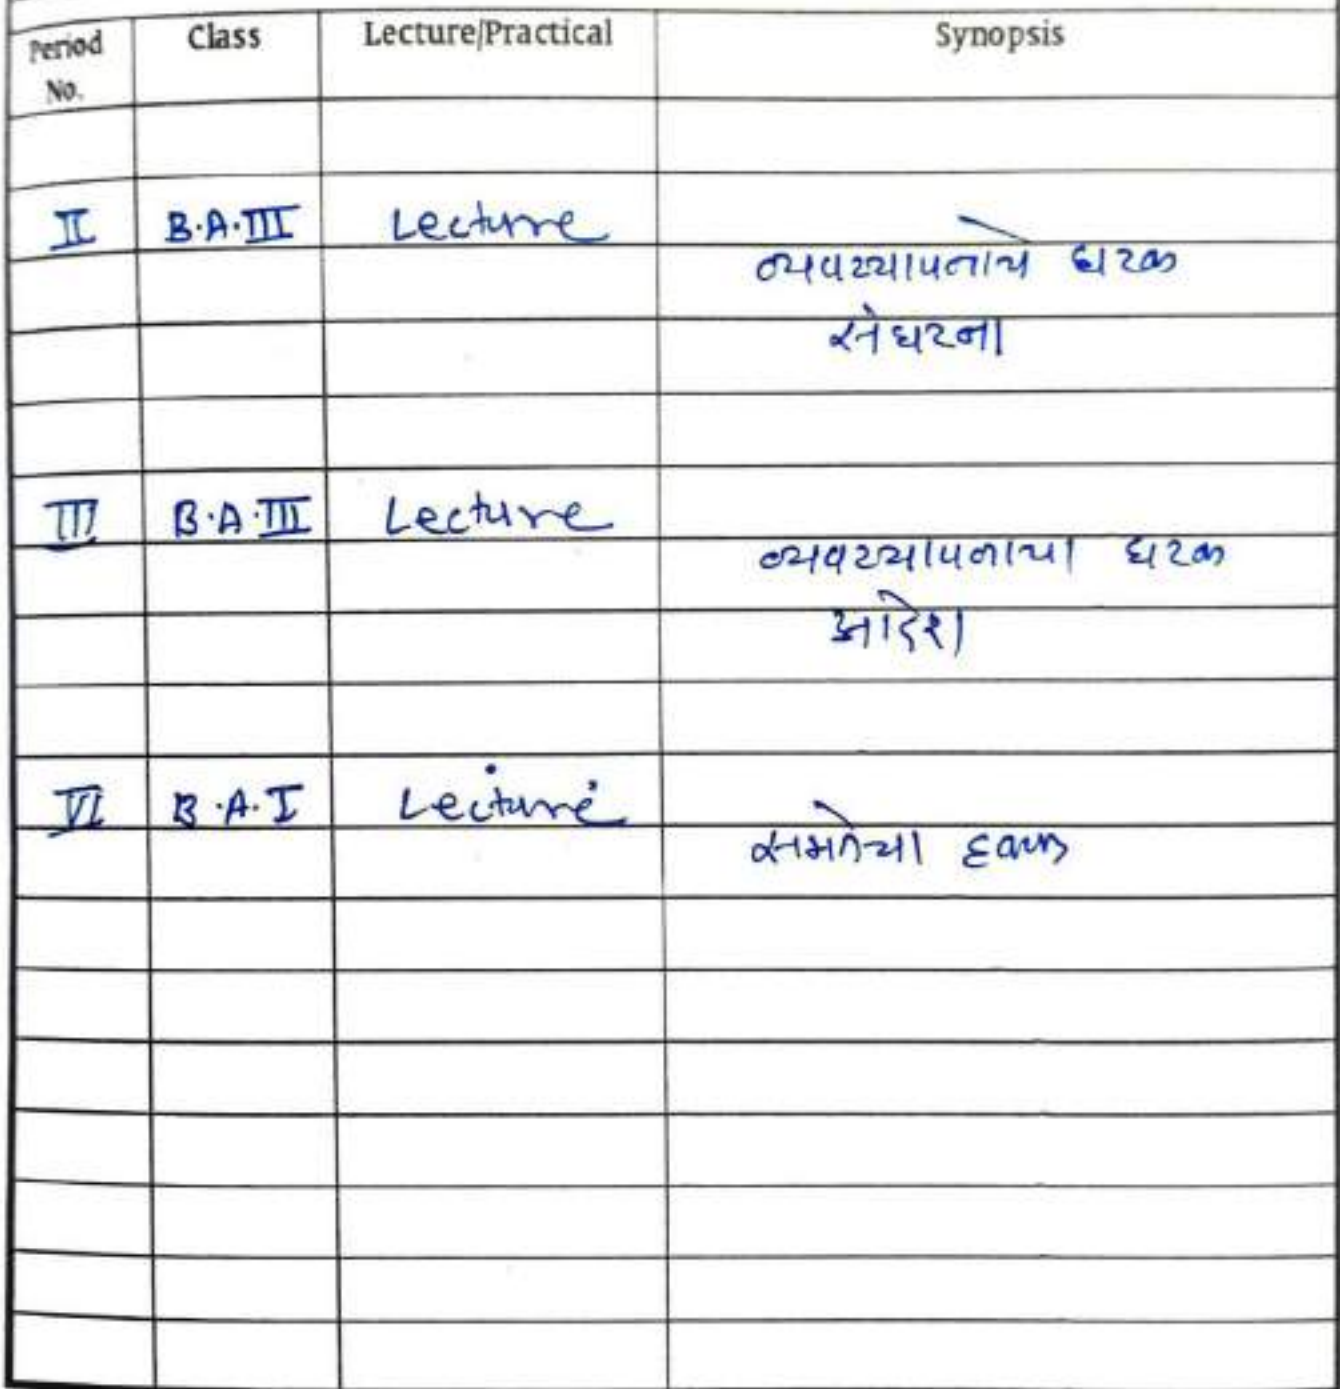 Period No. Class Lecture/Practical Synopsis
II B.A.III Lecture
व्यवस्थापनाचे घटक
संघटना
III B.A.III Lecture
व्यवस्थापनाचा घटक
आदेश
VI B.A.I Lecture
समतेचा हक्क